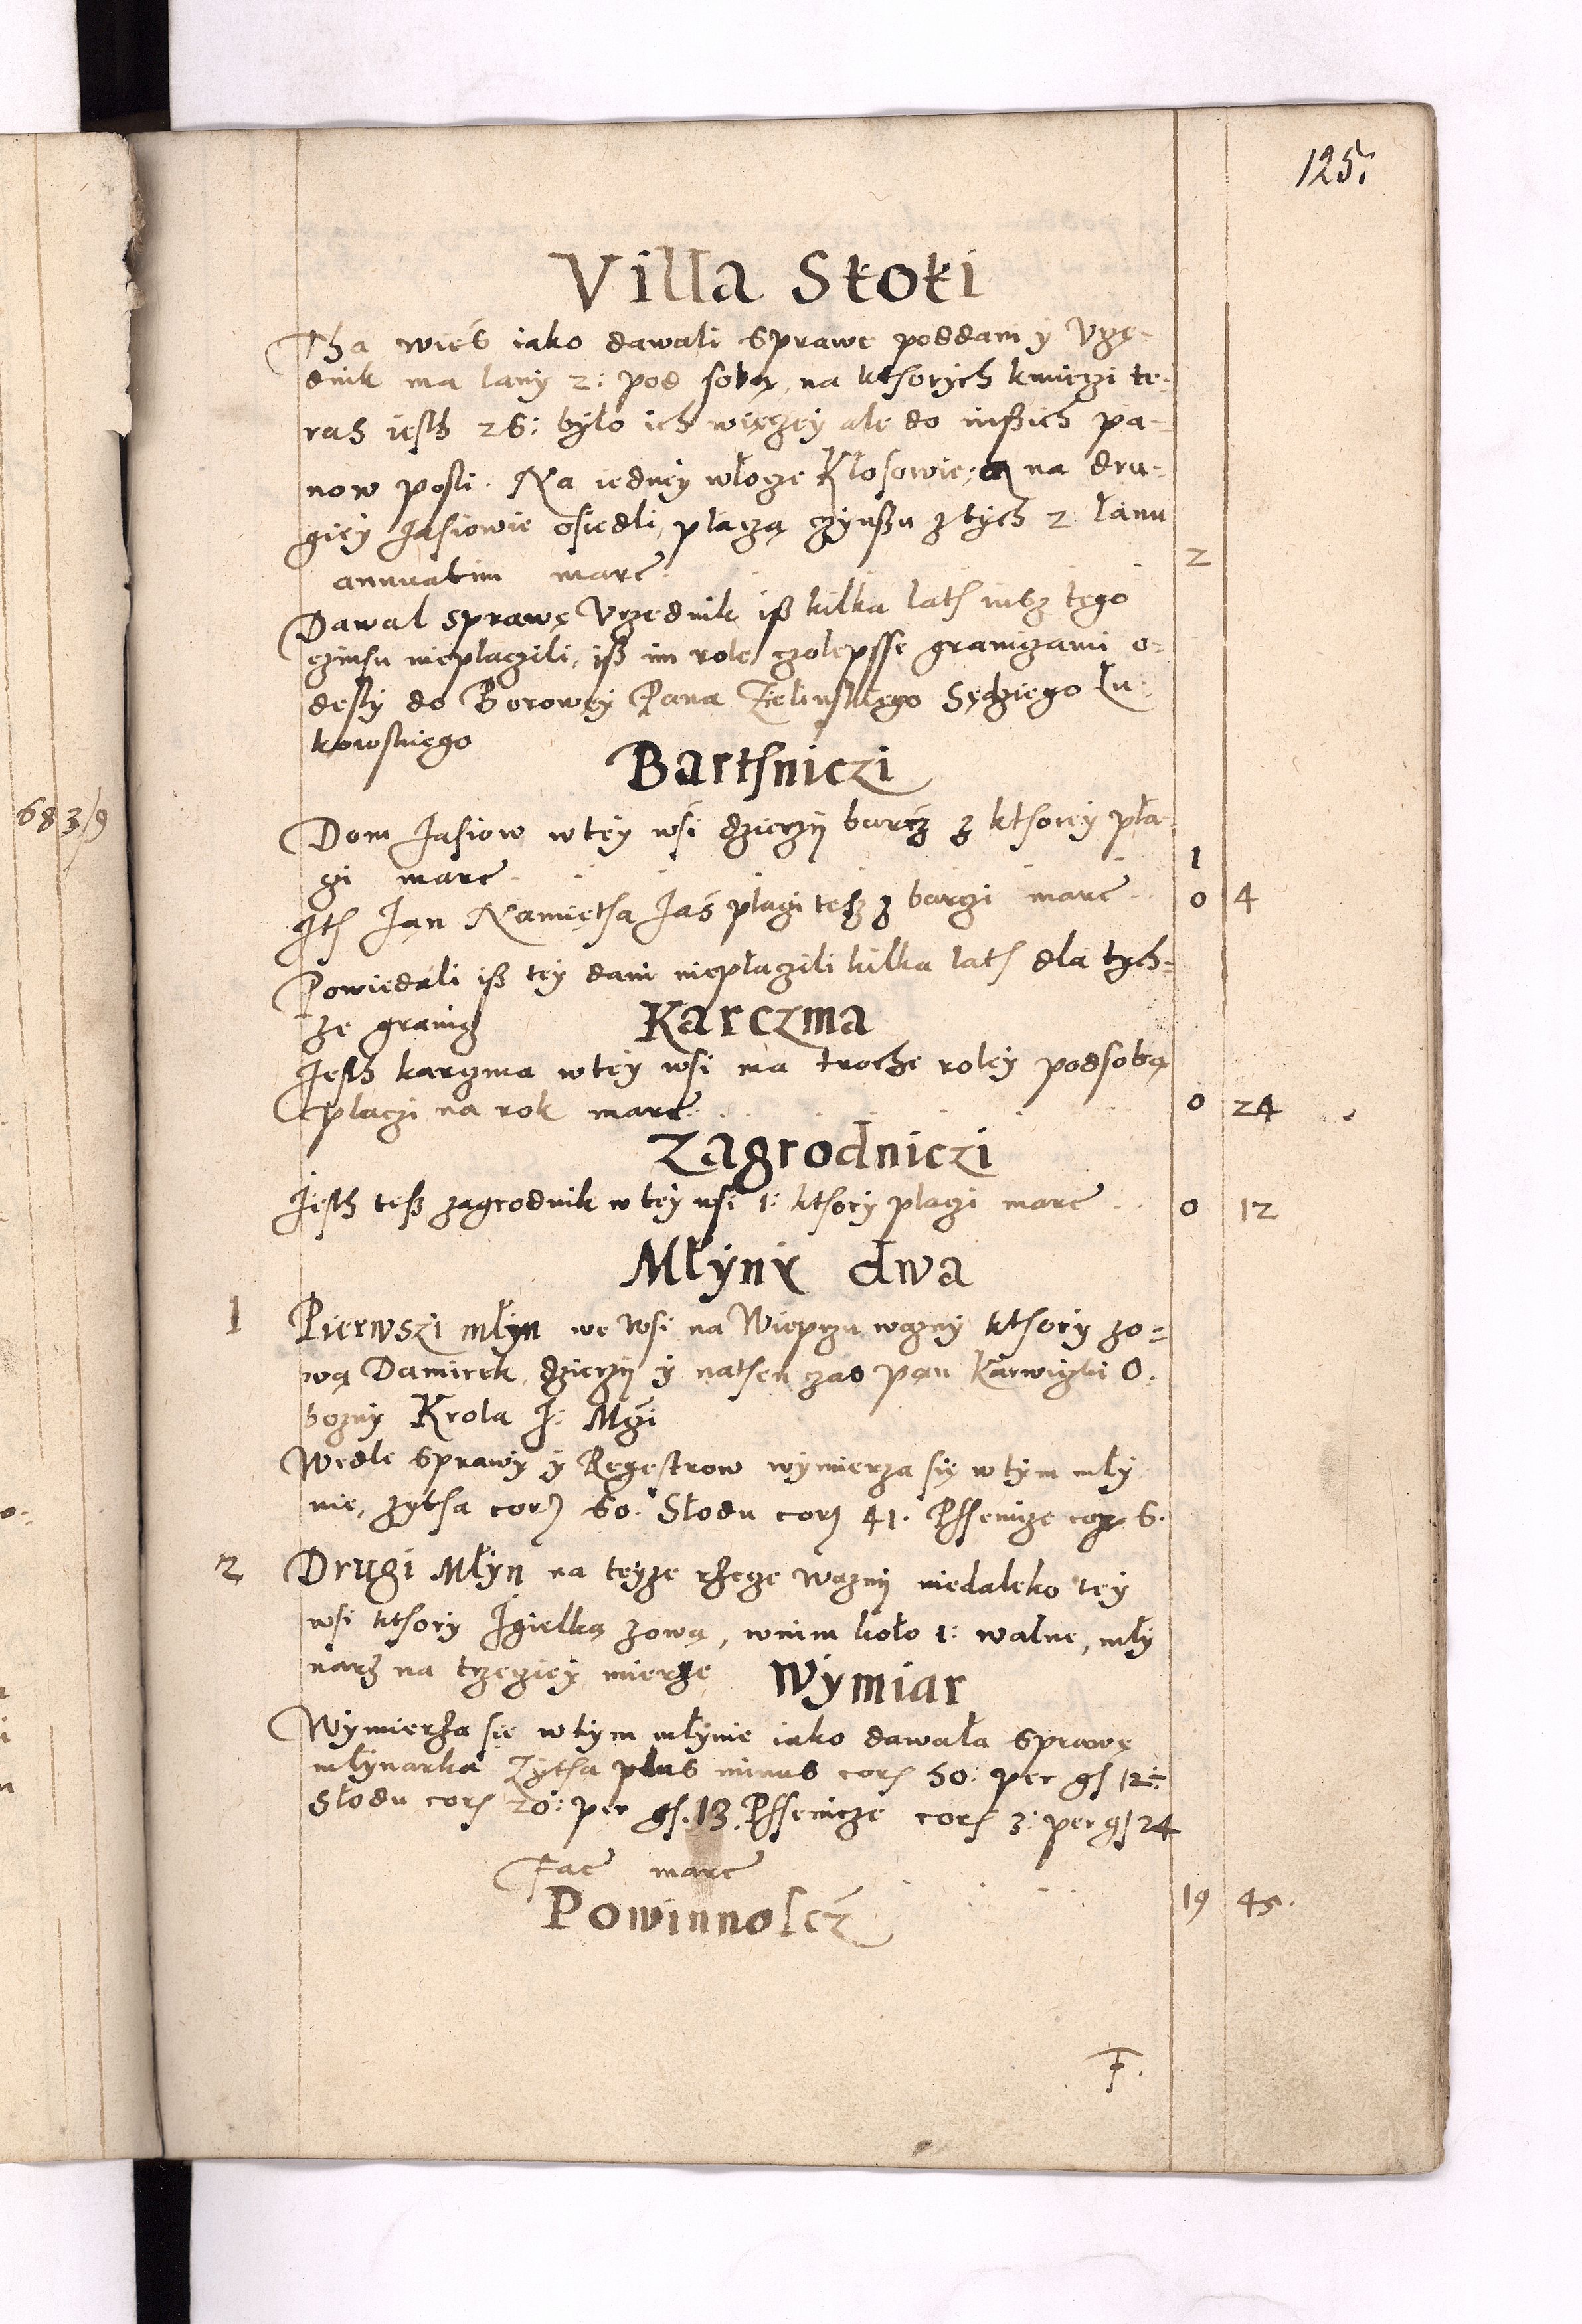 125.
Villa Stoki
Tha wieś iako dawali sprawe poddani y Vrzę-
dnik ma lany 2: pod sobą, na kthorych kmieczi te-
raz iesth 26: było ich więczey ale do inßich pa-
now posli. Na iedney włocze Kłosowie, a na dru-
giey Jasiowie osiedli, płaczą czynßu z tych 2 łanu
annuatim marc. 2
Dawal sprawę Vrzednik iß kilka lath iusz tego
czinsu nieplaczili, iß im role czolepsse graniczami o-
desły do Borowey Pana Zielinskiego Sędziego Łu-
kowskiego
Barthniczi
Dom Jasiow w tey wsi dzierzy barcz z kthorey pła-
czi marc. 1
Ith Jan Namietha Jaś płaczi tesz z barczi marc 0 4
Powiedali iß tey dani niepłaczili kilka lath dla tych-
ze granicz
Karczma
Iesth karczma w tey wsi ma troche roley pod sobą
placzi na rok marc. 0 24
Zagrodniczi
Iesth teß zagrodnik w tey wsi 1: kthory placzi marc 0 12
Młyny dwa
1 Pierwszi młyn we wsi na Wieprzu wazny kthory zo-
wą Damirek, dzierzy y nathen czas pan Karwiczki O.
bozny Krola J: Mczi
Wedle sprawy y Regestrow wymierza się w tym mły
nie, zytha cor 60. Słodu cor 41. Pssenicze cor 6.
2 Drugi Młyn na teyze rzecze wazny niedaleko tey
wsi kthory Igielką zową, wnim koło 1: walne, mły
narz na trzeciey mierze
Wymiar
Wymierza się w tym młynie iako dawała sprawę
młynarka Zytha plus minus cor 50: per gs 12:
Słodu cor 20: per gs. 13. Pssenicze cor 3: per gs 24
Fac marc 19 45.
Powinnoscz
F.
683/9